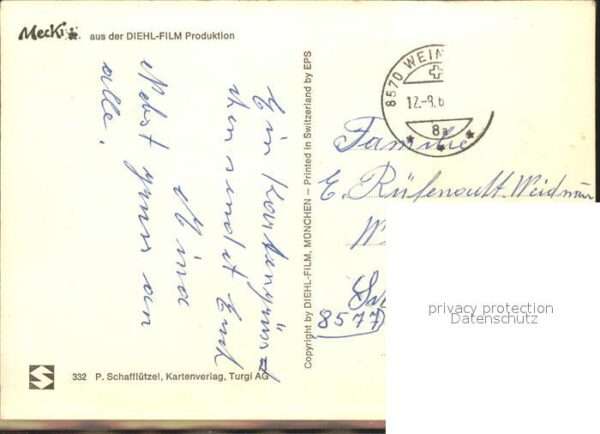 Mecki aus der DIEHL-FILM Produktion
Ein Kartengrüss
chen sendet Euch
Mina
Nebst gruss an
alle.
Copyright by DIEHL-FILM, MÜNCHEN – Printed in Switzerland by EPS
8570 WEIN
12.-9.6
8a
Familie
E. Rüfenacht-Weidmann
8577
privacy protection
Datenschutz
332 P. Schafflützel, Kartenverlag, Turgi AG